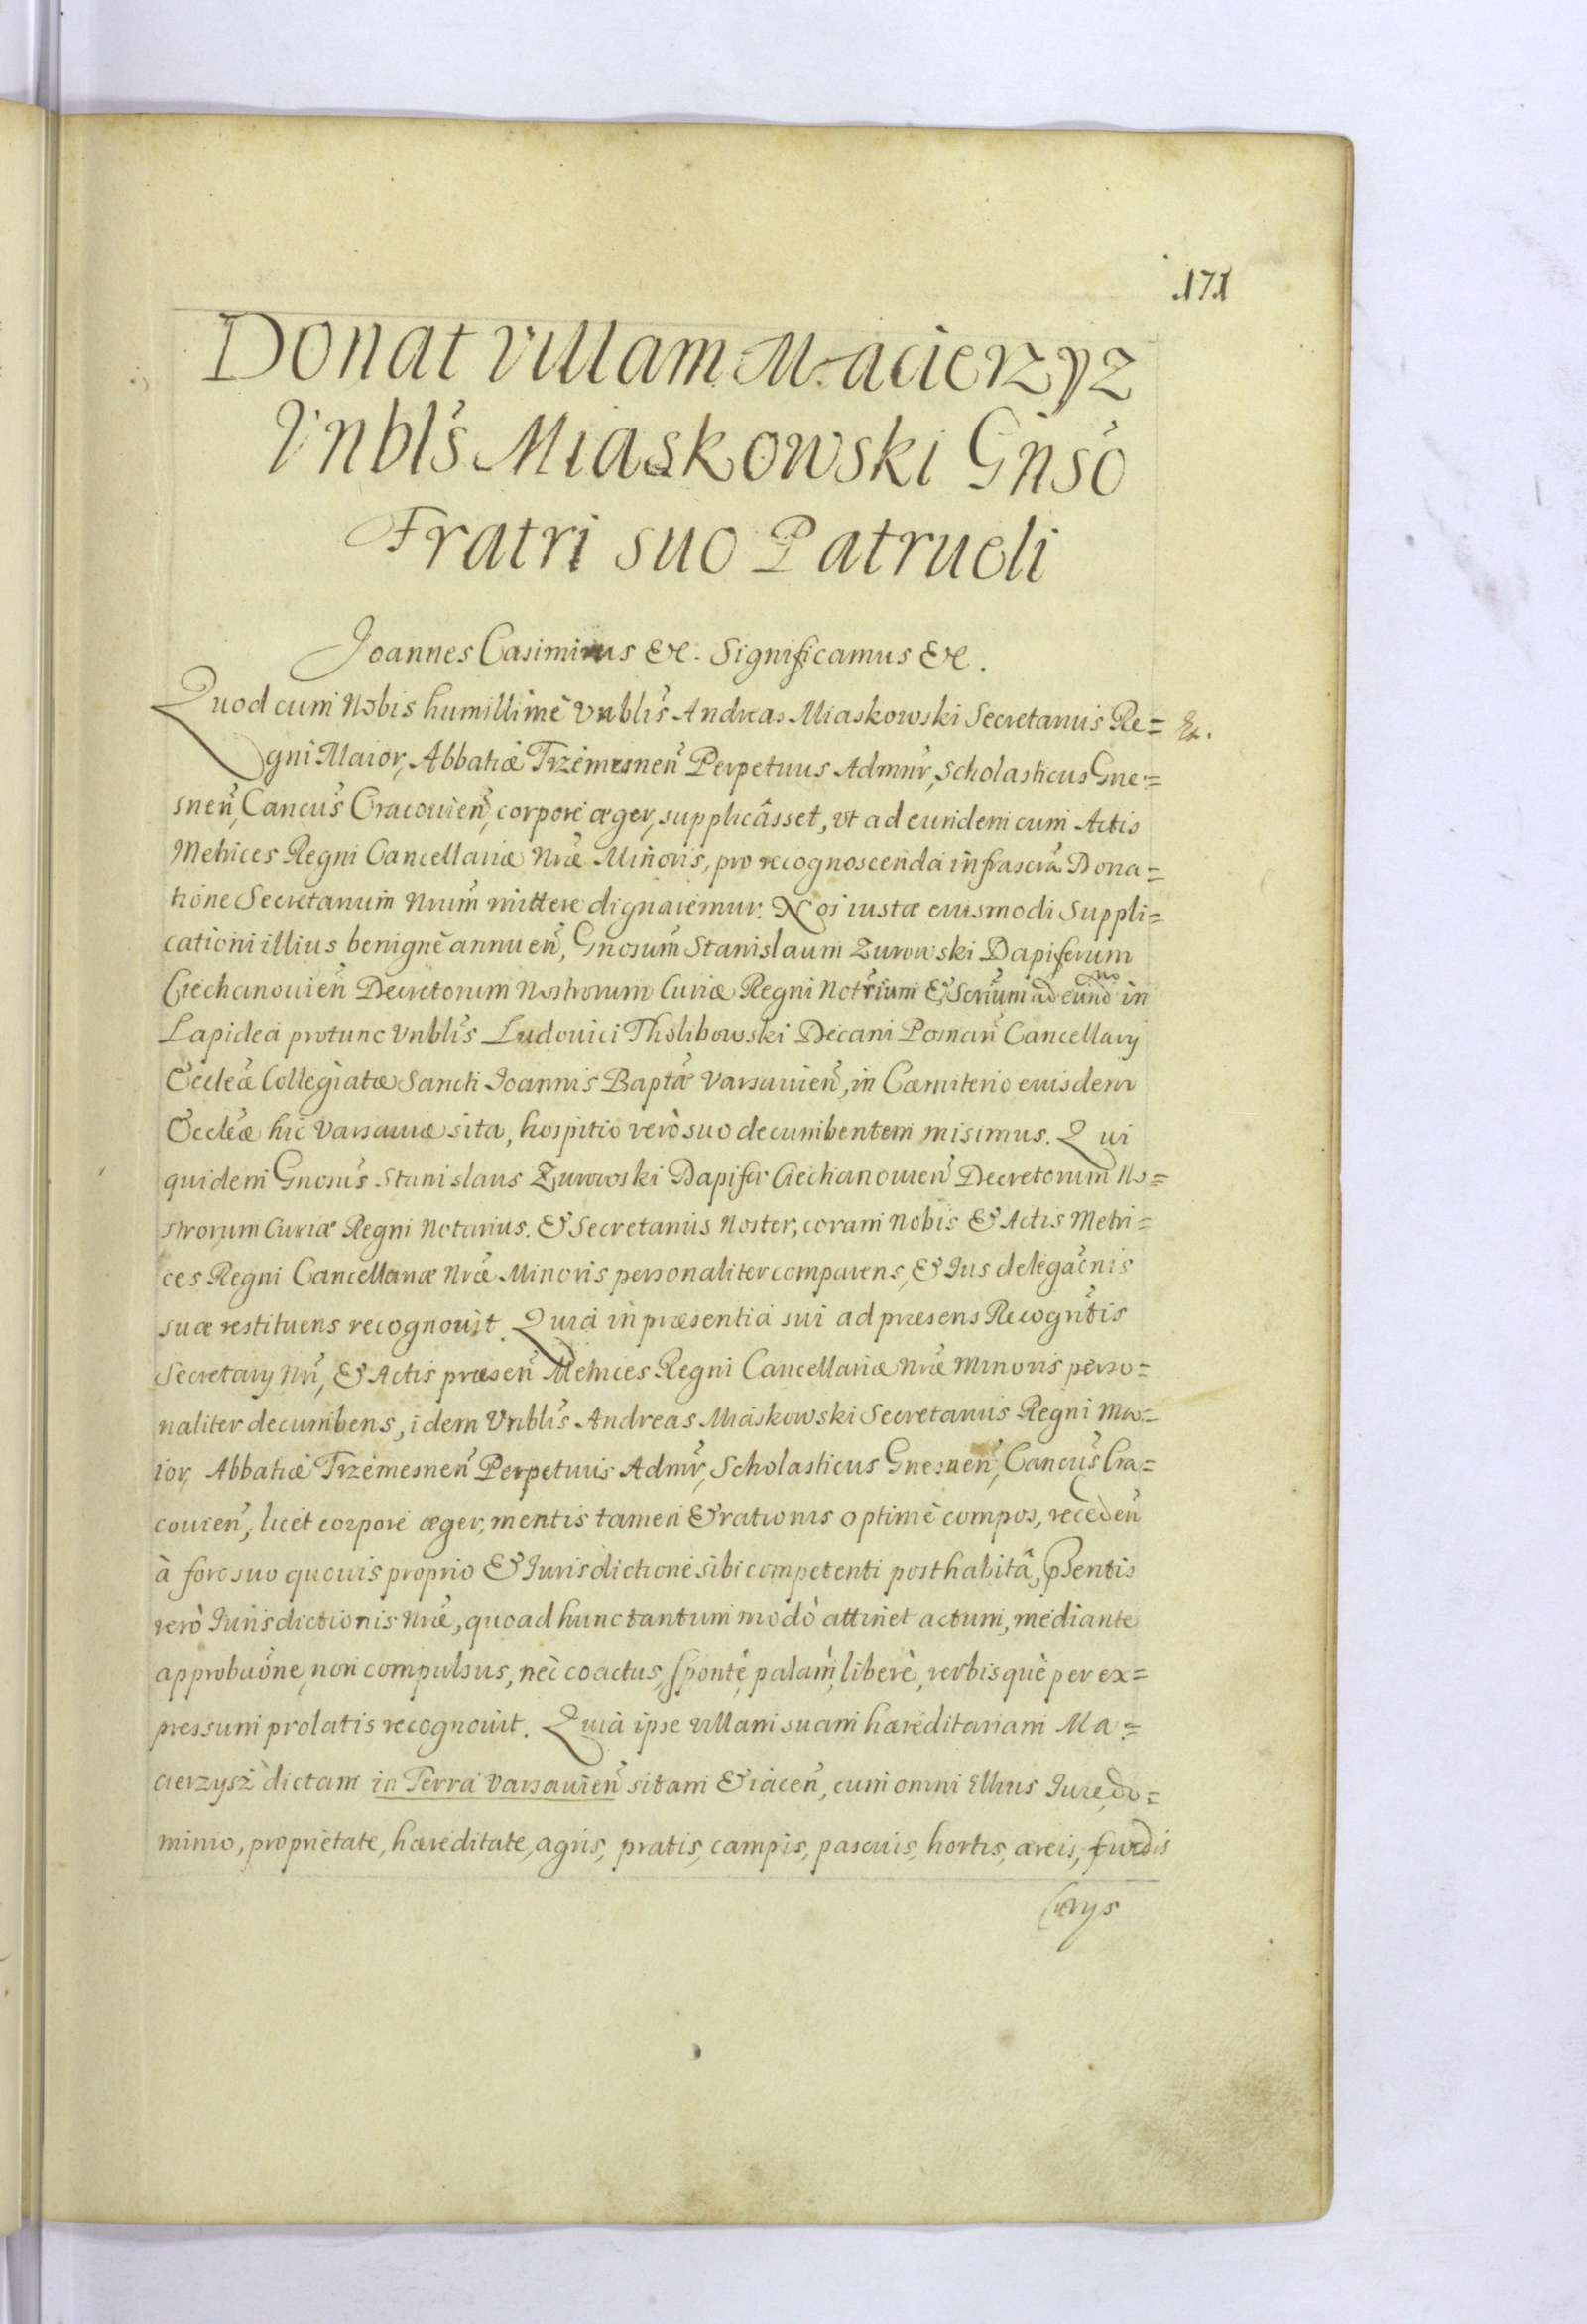 171
Donat villam Macierzyz
Vnbľs Miaskowski Gnsó
Fratri suo Patrueli
Joannes Casimirus &c. Significamus &c.
Quod cum Nobis humillimè Vnblĩs Andreas Miaskowski Secretarius Re=
gni Maior, Abbatiæ Trzemesneñ Perpetuus Admnr̃, Scholasticus Gne=
sneñ, Cancus̃ Cracouieñ, corpore æger, supplicâsset, vt ad eundem cum Actis
Metrices Regni Cancellariæ Nræ̃ Minoris, pro recognoscenda infrascrã Dona=
tione Secretarium Nrum̃ mittere dignaremur. Nos iustæ eiusmodi Suppli=
cationi illius benignè annueñ, Gnosum̃ Stanislaum Zurowski Dapiferum
Ciechanouieñ Decretorum Nostrorum Curiæ Regni Notrĩum & Scrium̃ ad eund̃ in
Lapidea protunc Vnblĩs Ludouici Tholibowski Decani Posnañ Cancellarij
Eccleæ̃ Collegiatæ Sancti Joannis Baptæ̃ Varsauieñ, in Cæmiterio eiusdem
Eccleæ̃ hic Varsauiæ sita, hospitio verò suo decumbentem misimus. Qui
quidem Gnosus̃ Stanislaus Zurowski Dapifer Ciechanouieñ Decretorum No=
strorum Curiæ Regni Notarius. & Secretarius Noster, coram Nobis & Actis Metri=
ces Regni Cancellariæ Nræ̃ Minoris personaliter comparens, & Jus delegac̃nis
suæ restituens recognouit. Quia in præsentia sui ad præsens Recognñtis
Secretarij Nrĩ, & Actis præseñ Metrices Regni Cancellariæ Nræ̃ Minoris perso=
naliter decumbens, idem Vnblĩs Andreas Miaskowski Secretarius Regni Ma=
ior, Abbatiæ Trzemesneñ Perpetuus Admr̃, Scholasticus Gnesneñ, Cancus̃ Cra=
couieñ, licet corpore æger, mentis tamen & rationis optimè compos, recedeñ
à foro suo quouis proprio & Jurisdictione sibi competenti posthabitâ, p̃sentis
verò Jurisdictionis Nræ̃, quoad hunc tantum modò attinet actum, mediante
approbaõne, non compulsus, nec coactus, spontè, palàm, liberè, verbisquè per ex=
pressum prolatis recognouit. Quia ipse villam suam hæreditariam Ma=
cierzysz dictam in Terra Varsauieñ sitam & iaceñ, cum omni Illius Jure, do=
minio, proprietate, hæreditate, agris, pratis, campis, pascuis, hortis, areis, fundis